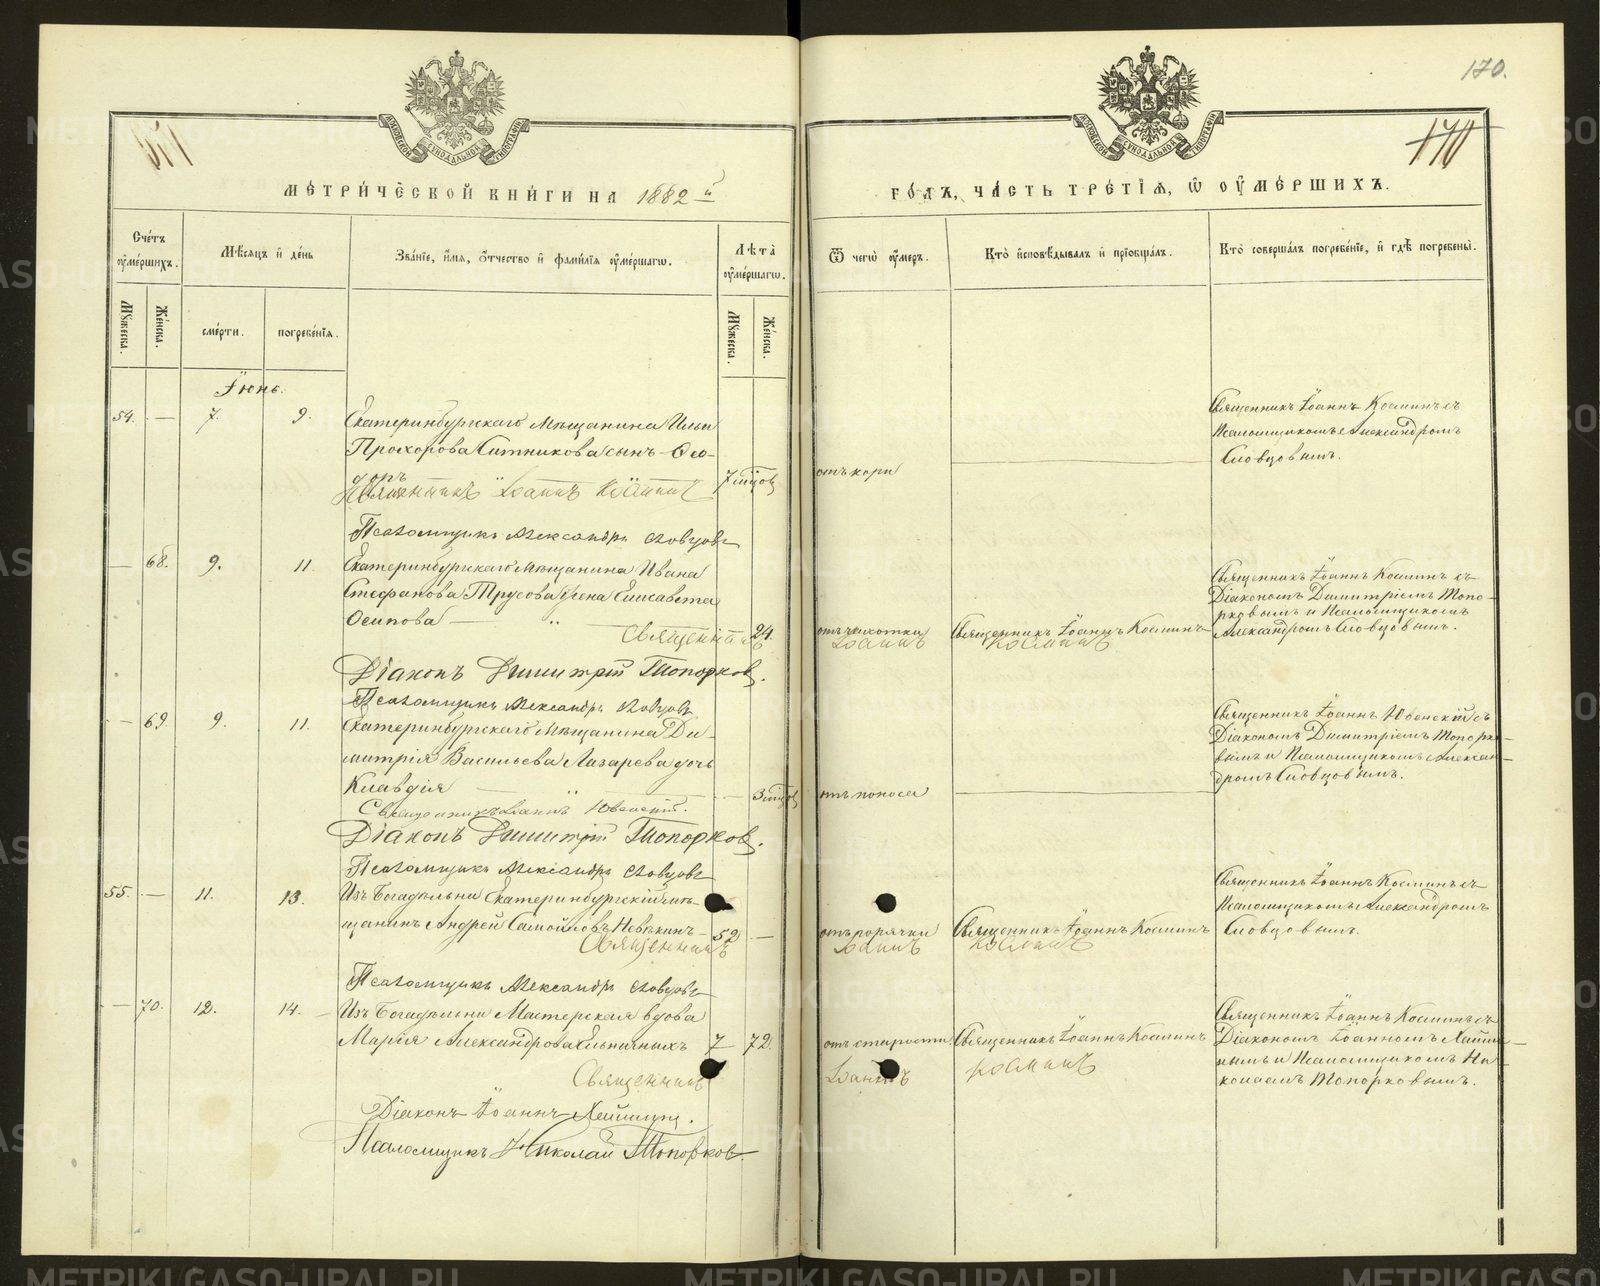 170.
170
МЕТРИЧЕСКОЙ КНИГИ НА 1882 й
ГОДЪ, ЧАСТЬ ТРЕТІЯ, Ѿ ОУМЕРШИХЪ.
Счетъ оумершихъ.
Мѣсяцъ и день
Званіе, имя, отчество и фамилія оумершагѡ.
Лѣта оумершагѡ.
Ѿ чегѡ оумеръ.
Кто исповѣдывалъ и пріобщалъ.
Кто совершалъ погребеніе, и гдѣ погребены.
Мужеска.
Женска.
смерти.
погребенія.
Мужеска.
Женска.
Іюнь.
54. — 7. 9.
Екатеринбургскаго мѣщанина Ильи
Прохорова Ситникова сынъ Ѳео-
доръ
7 мѣсцовъ
отъ кори
Священникъ Іоаннъ Косминъ съ
Псаломщикомъ Александромъ
Словцовымъ.
Священникъ Іоаннъ Косминъ
Псаломщикъ Александръ Словцовъ
— 68. 9. 11.
Екатеринбургскаго мѣщанина Ивана
Стефанова Трусова жена Елисавета
Осипова
24.
отъ чахотки
Священникъ Іоаннъ Косминъ
Священникъ Іоаннъ Косминъ съ
Діакономъ Димитріемъ Топо-
рковымъ и Псаломщикомъ
Александромъ Словцовымъ.
Священникъ Іоаннъ Косминъ
Діаконъ Димитрій Топорков.
Псаломщикъ Александръ Словцовъ
— 69. 9. 11.
Екатеринбургскаго мѣщанина Ди-
митрія Васильева Лазарева дочь
Клавдія
3 мѣсцов
отъ поноса
Священникъ Іоаннъ Ювенскій съ
Діакономъ Димитріемъ Топорко-
вымъ и Псаломщикомъ Алексан-
дромъ Словцовымъ.
Священникъ Іоаннъ Ювенскій.
Діаконъ Димитрій Топорков.
Псаломщикъ Александръ Словцовъ
55. — 11. 13.
Изъ Богадѣльни Екатеринбургскій мѣ-
щанинъ Андрей Самойловъ
52 —
отъ горячки
Священникъ Іоаннъ Косминъ
Священникъ Іоаннъ Косминъ съ
Псаломщикомъ Александромъ
Словцовымъ.
Священникъ Іоаннъ Косминъ
Псаломщикъ Александръ Словцовъ
— 70. 12. 14.
Изъ Богадѣльни Мастерская вдова
Марія Александрова Ельничныхъ
72.
отъ старости
Священникъ Іоаннъ Косминъ
Священникъ Іоаннъ Косминъ съ
Діакономъ Іоанномъ
нымъ и Псаломщикомъ Ни-
колаемъ Топорковымъ.
Священникъ Іоаннъ Косминъ
Діаконъ Іоаннъ
Псаломщикъ Николай Топорков
METRIKI.GASO-URAL.RU